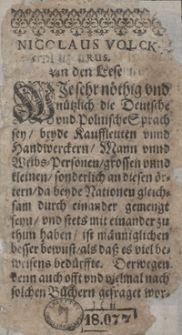 NICOLAUS VOLCK-
RUS.
An den Leser
WJe sehr nöthig vnd
nützlich die Deutsche
vnd Polnische Sprach
sey / beyde Kauffleuten vnnd
Handwerckern / Mann vnnd
Weibs Personen / grossen vnnd
kleinen / sonderlich an diesen ör-
tern / da beyde Nationen gleich-
sam durch einander gemengt
seyn / vnd stets mit einander zu
thun haben / ist männiglichen
besser bewust / als daß es viel be-
weisens bedürffte. Derwegen
denn auch offt vnd vielmal nach
solchen Büchern gefraget wor-
18.077